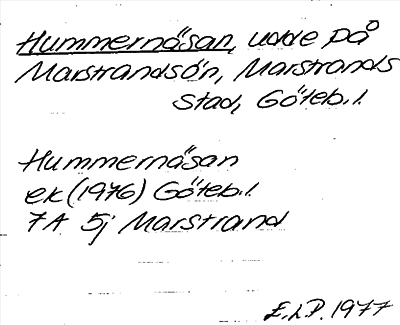 Hummernäsan, udde på
Marstrandsön, Marstrands
stad, Göteb.l.
Hummernäsan
ek (1976) Göteb.l.
7A 5j Marstrand
E.L.P. 1977